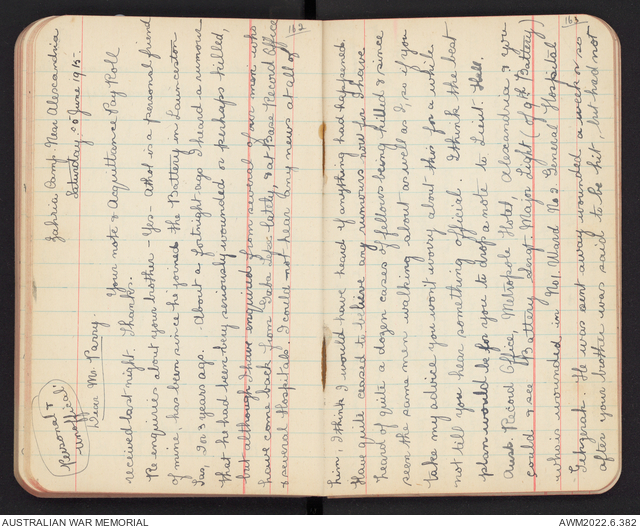 162
Zahria Camp. Near Alexandria
Saturday 5 June 1915.
Personal &
unofficial.
Dear Mr. Parry.
Your note & Acquittance Pay Roll
received last night. Thanks.
Re enquiries about your brother – Yes – Athol is a personal friend
of mine, has been since he joined the Battery in Launceston
Tas, 2 or 3 years ago. About a fortnight ago I heard a rumour
that he had been very seriously wounded or perhaps killed,
but although I have enquired from several of our men who
have come back from Gaba Tepe lately, & at Base Record Office
& several Hospitals I could not hear any news at all of
163
him, I think I would have heard if anything had happened.
Have quite ceased to believe any rumours now for I have
heard of quite a dozen cases of fellows being killed & since
seen the same men walking about as well as I, so if you
take my advice you won't worry about this for a while.
not till you hear something official. I think the best
plan would be for you to drop a note to Lieut. Hall,
Aust. Record Office, Metropole Hotel, Alexandria & if you
could & see Battery Sergt-Major Light (of 9th Battery)
who is wounded in No 1 Ward No 2 General Hospital
Gehzerah. He was sent away wounded a week or so
after your brother was said to be hit, but had not
AUSTRALIAN WAR MEMORIAL
AWM2022.6.382